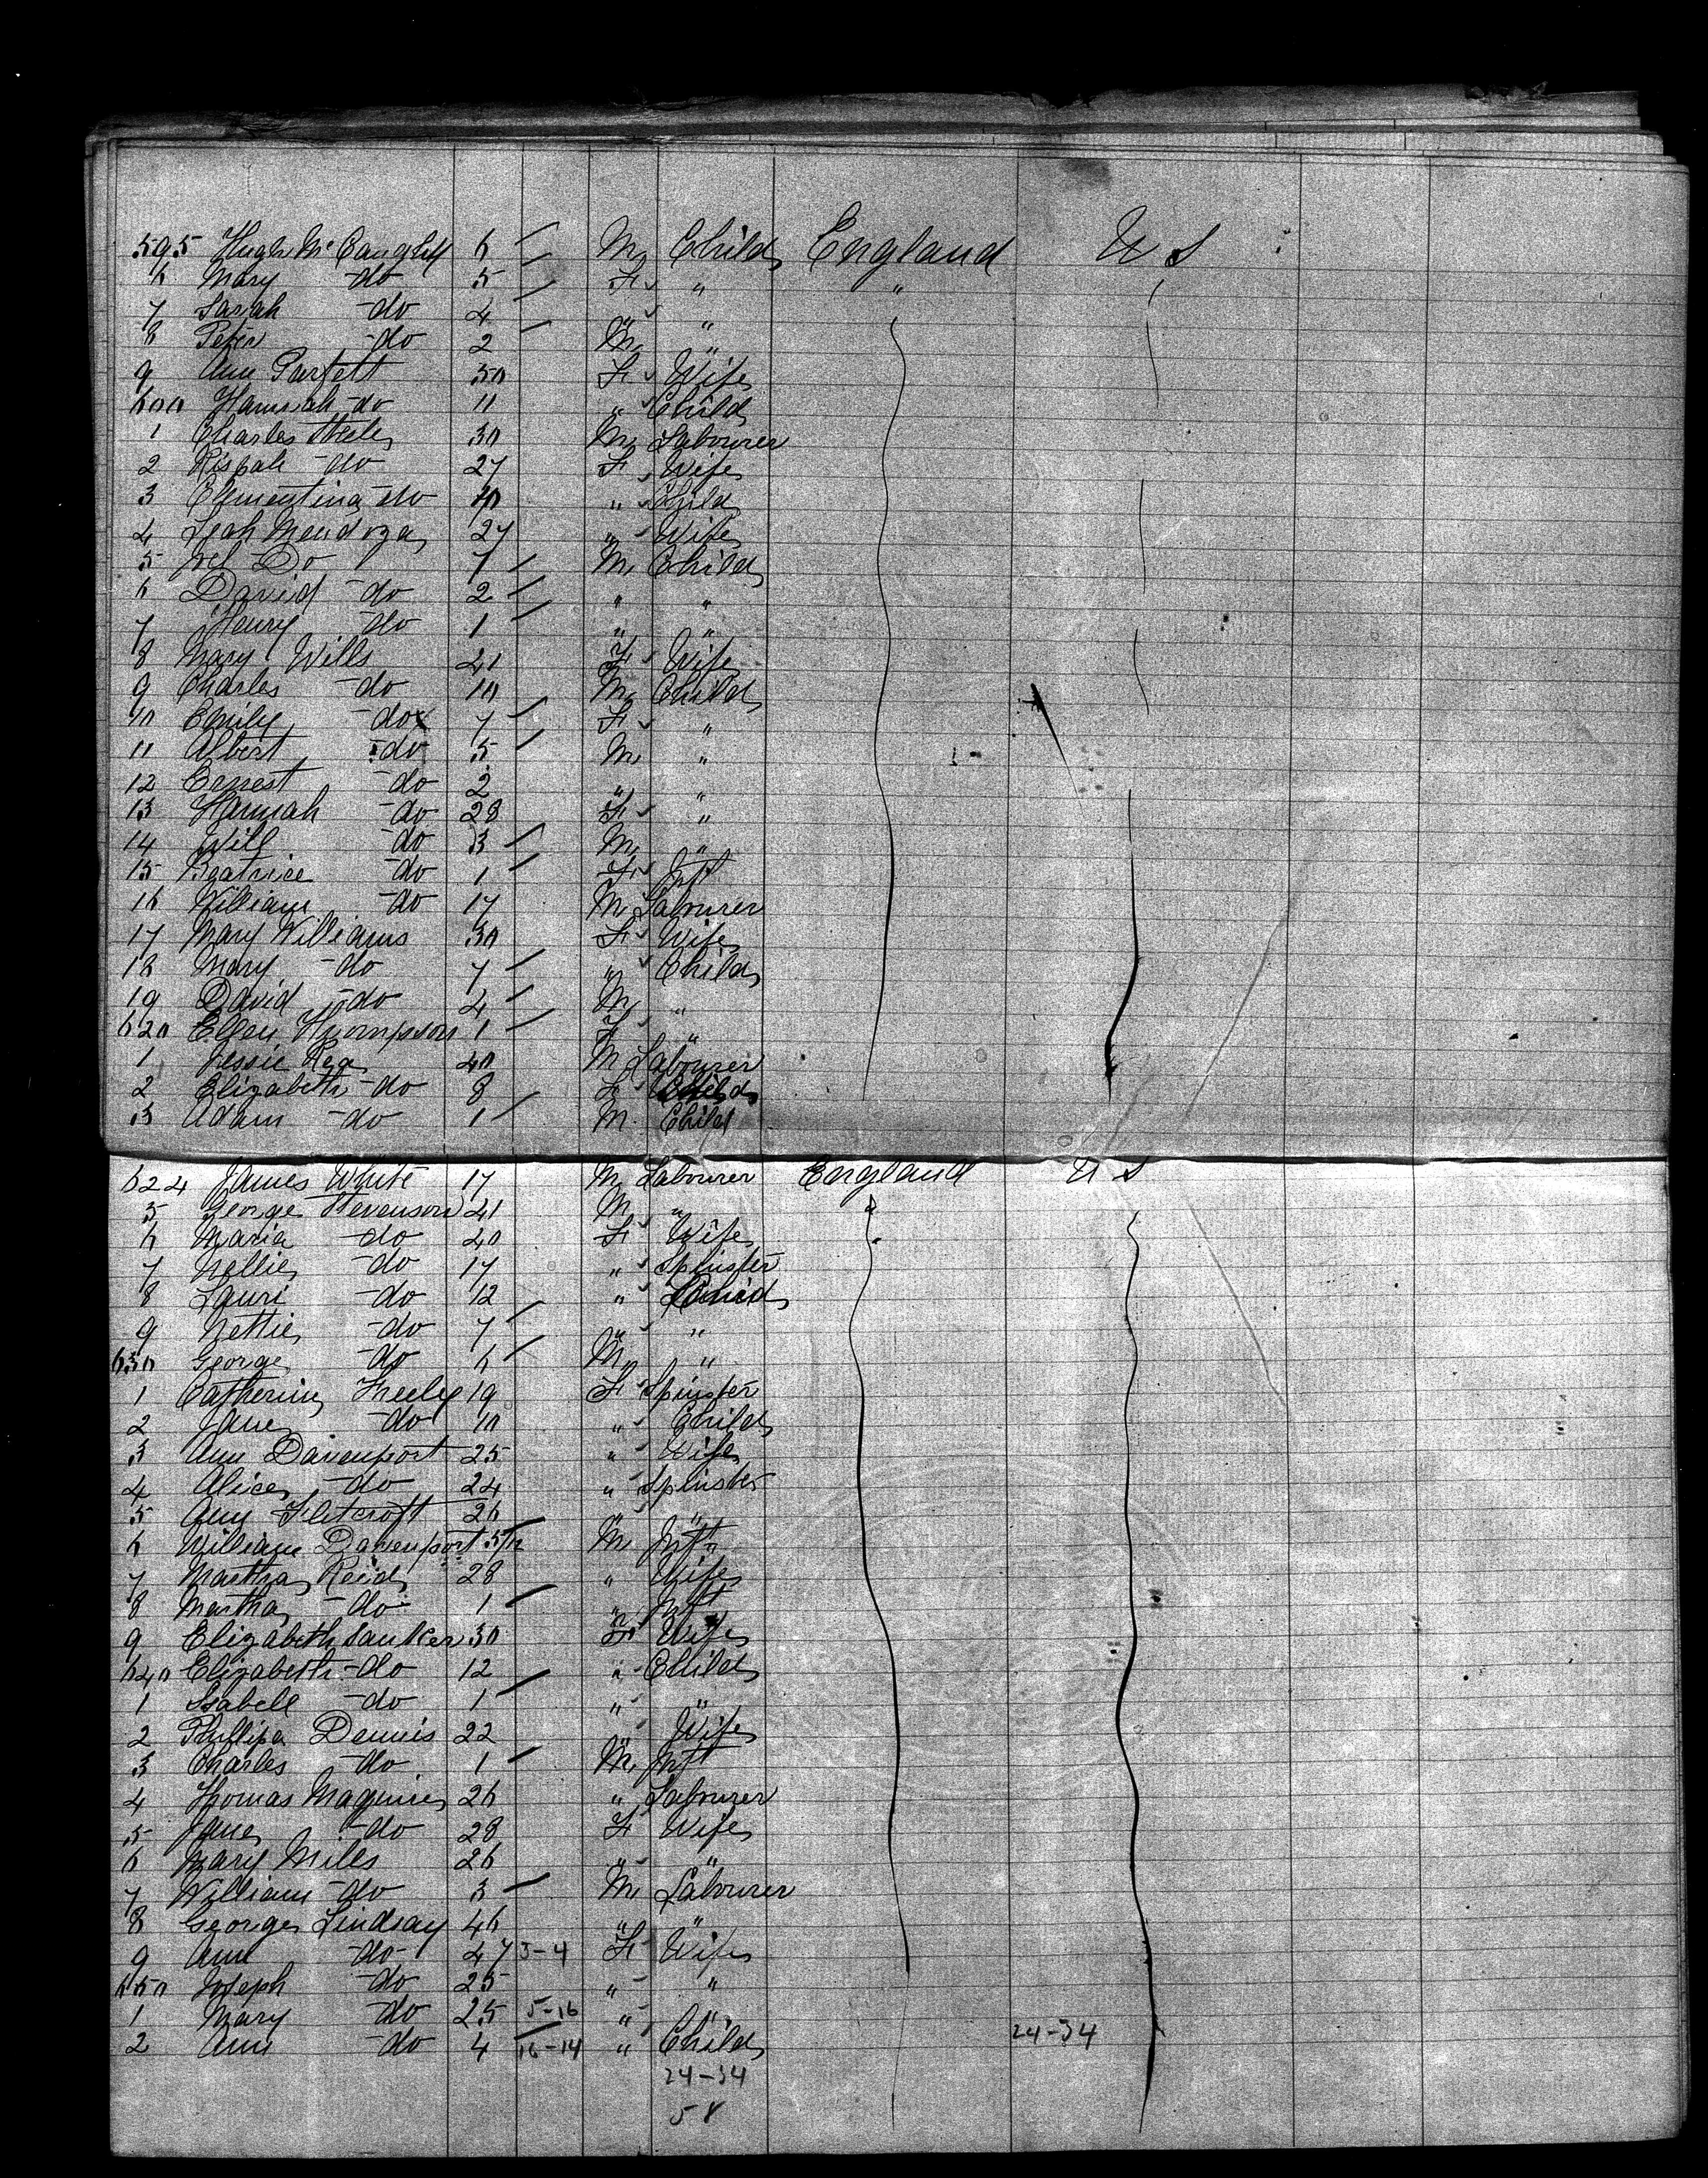 595 Hugh McCaughey 6 M Child England U S
6 Mary do 5 F " "
7 Sarah do 4 " "
8 Peter do 2 M "
9 Ann Partett 30 F Wife
600 Hannah do 11 " Child
1 Charles 30 M Labourer
2 Rispah do 27 F Wife
3 Clementina do 10 " Child
4 Leah Mendoza 27 " Wife
5 Do 7 M Child
6 David do 2 " "
7 Henry do 1 " "
8 Mary Wills 21 F Wife
9 Charles do 10 M Child
10 Emily do x 7 F "
11 Albert do 5 M "
12 Ernest do 2 " "
13 Hannah do 28 F "
14 Will do 3 M "
15 Beatrice do 1 F Inft
16 William do 17 M Labourer
17 Mary Williams 30 F Wife
18 Mary do 7 " Child
19 David do 4 M "
620 Ellen Thompson 1 F "
1 Jessie Rea 40 M Labourer
2 Elizabeth do 8 F Child
3 Adam do 1 M Child
624 James White 17 M Labourer England U S
5 George Stevenson 41 M "
6 Maria do 40 F Wife
7 Nellie do 17 " Spinster
8 Lauri do 12 " Child
9 Nettie do 7 " "
630 George do 6 M "
1 Catherine Freeley 19 F Spinster
2 Jane do 10 " Child
3 Ann Davenport 25 " Wife
4 Alice do 24 " Spinster
5 Ann Flitcroft 26 " "
6 William Davenport 5/12 M Inft
7 Martha Reid 28 " Wife
8 Martha do 1 " Inft
9 Elizabeth 30 F Wife
640 Elizabeth do 12 " Child
1 Isabell do 1 " "
2 Phillipa Dennis 22 " Wife
3 Charles do 1 M Inft
4 Thomas Maguire 26 " Labourer
5 Jane do 28 F Wife
6 Mary Mills 26 " "
7 William do 3 M Labourer
8 George Lindsay 46 " "
9 Ann do 47 3-4 F Wife
650 Joseph do 25 " "
1 Mary do 25 5-16 " "
2 Ann do 4 16-14 " Child 24-34
24-34
58